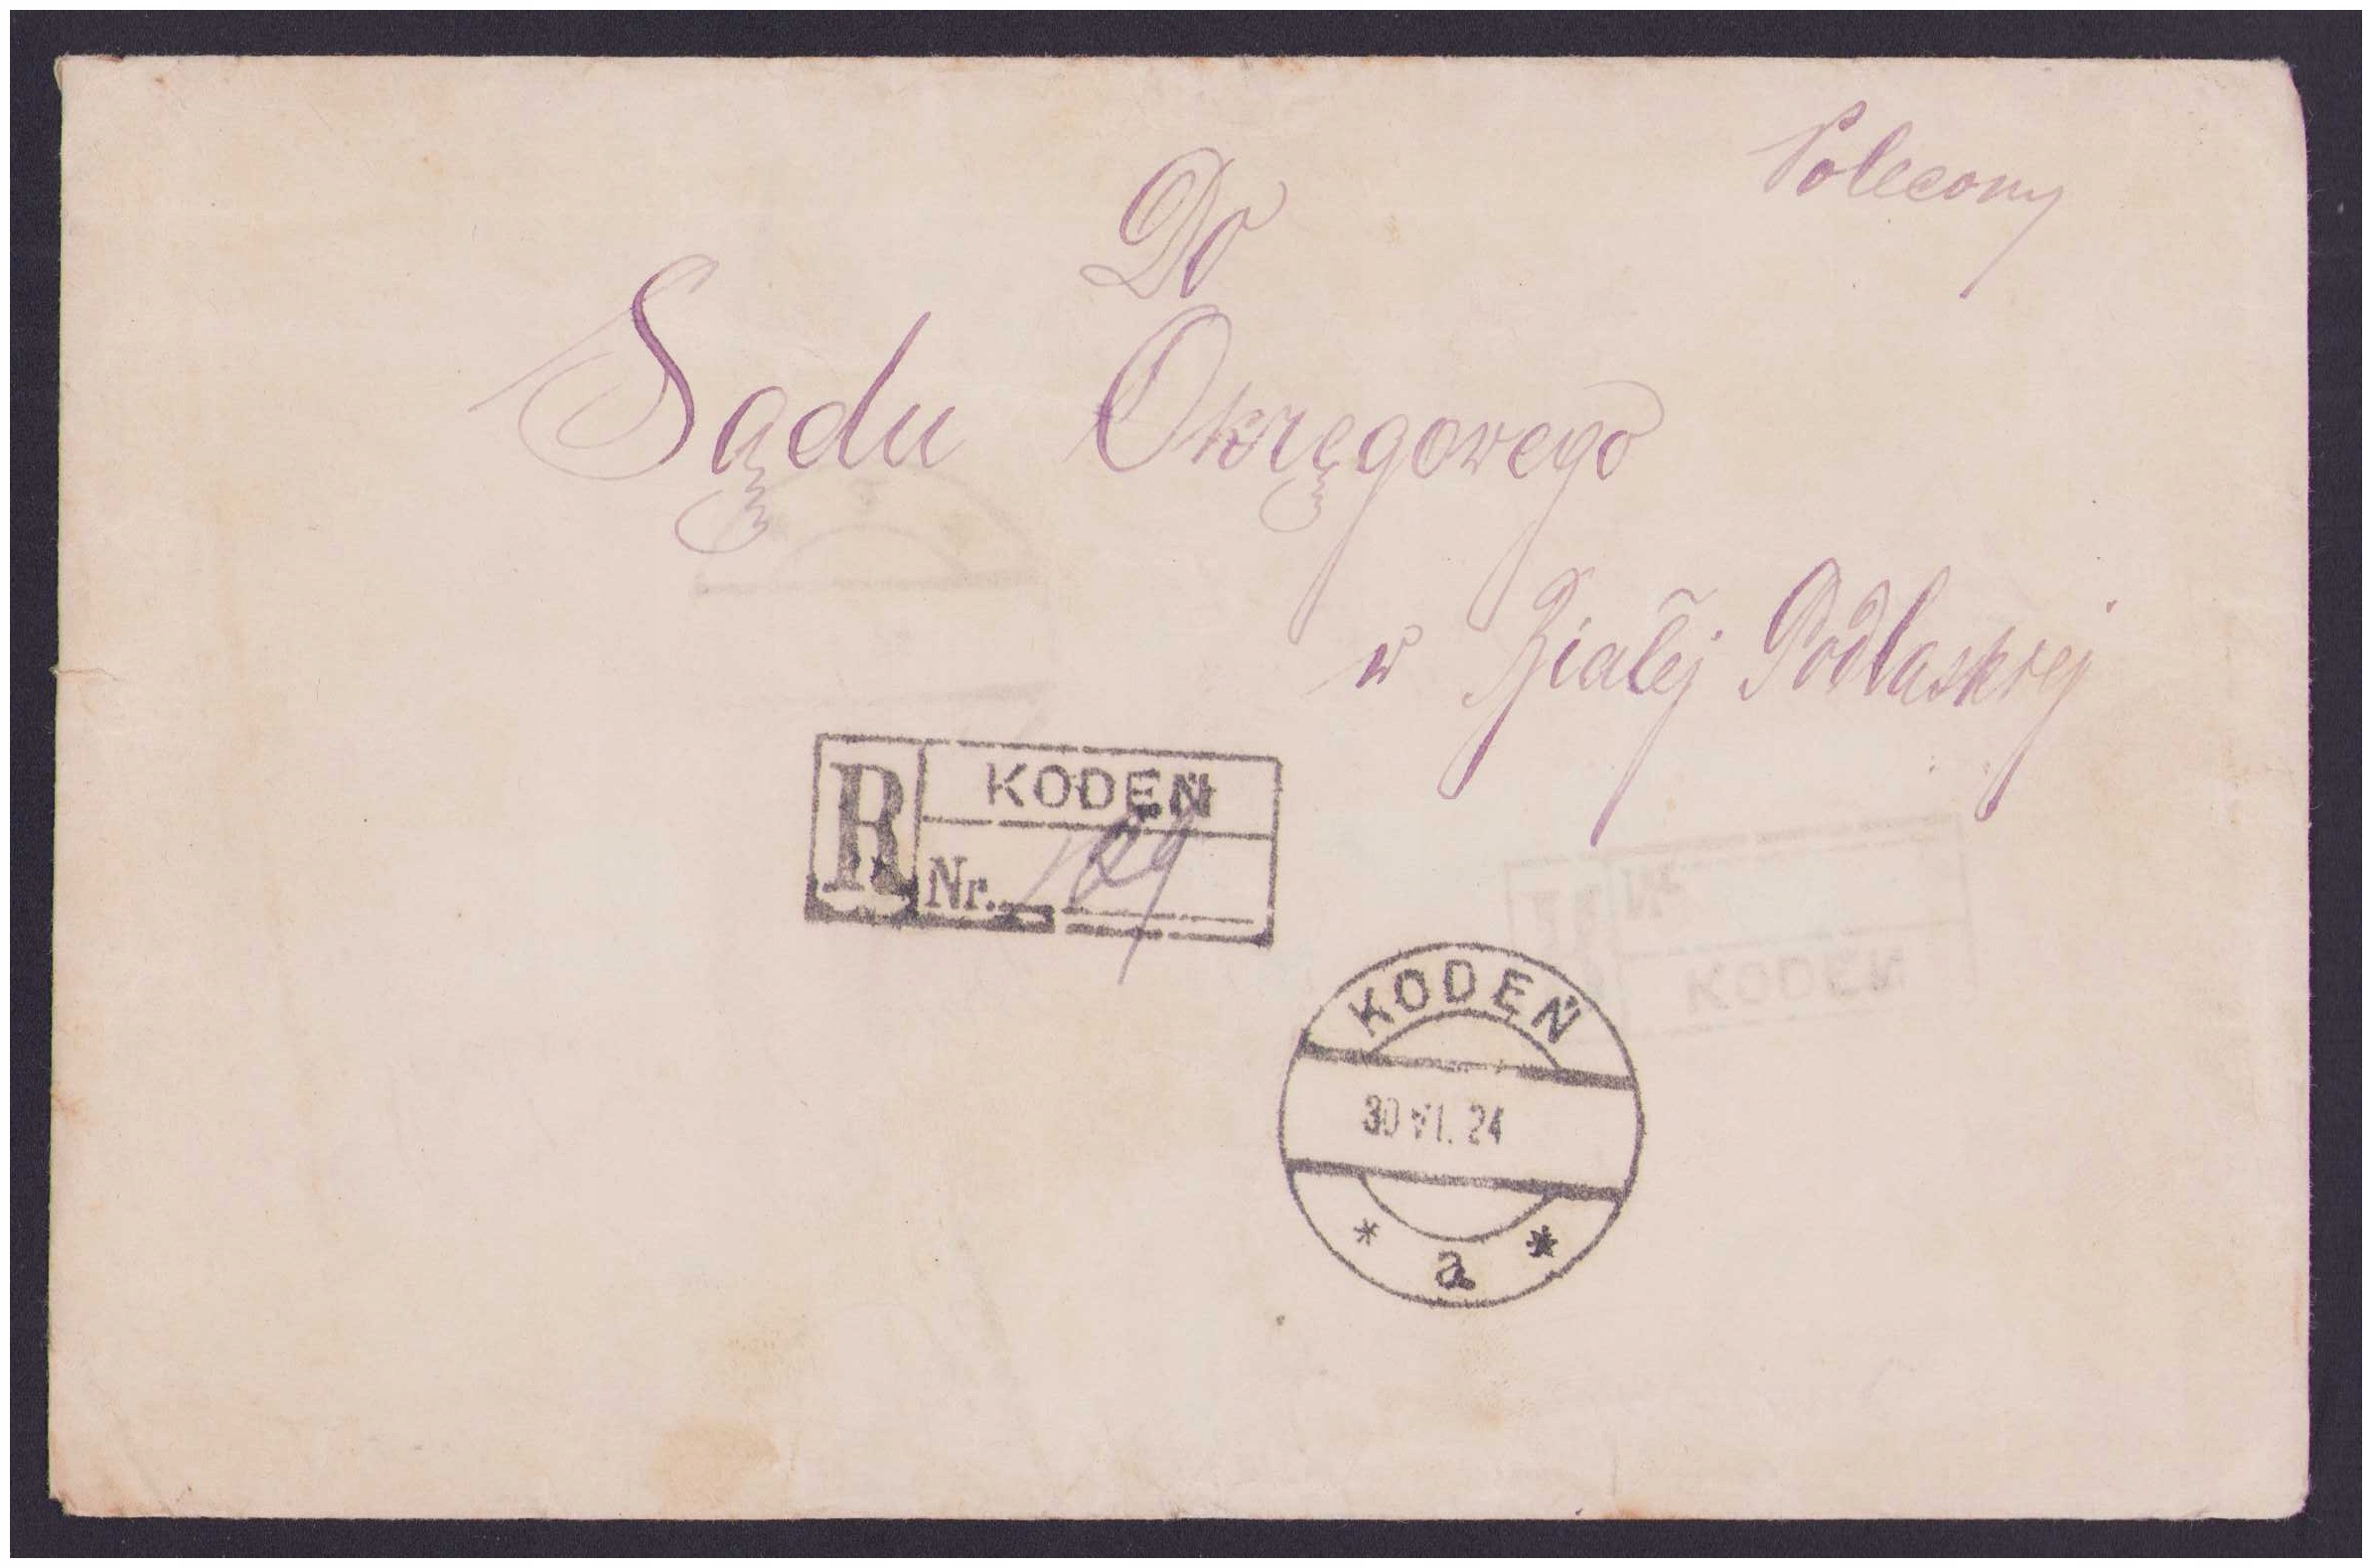 Polecony
Do
Sądu Okręgowego
w Białej Podlaskiej
R KODEŃ
Nr.
KODEŃ
30 VI. 24
* a *